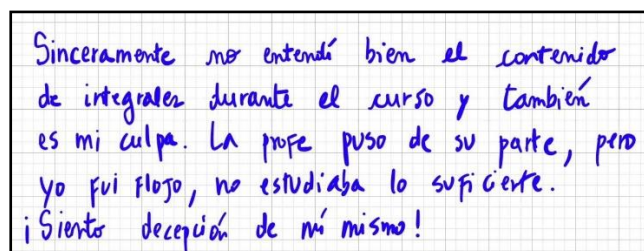 Sinceramente no entendí bien el contenido
de integrales durante el curso y también
es mi culpa. La profe puso de su parte, pero
yo fui flojo, no estudiaba lo suficiente.
¡Siento decepción de mí mismo!